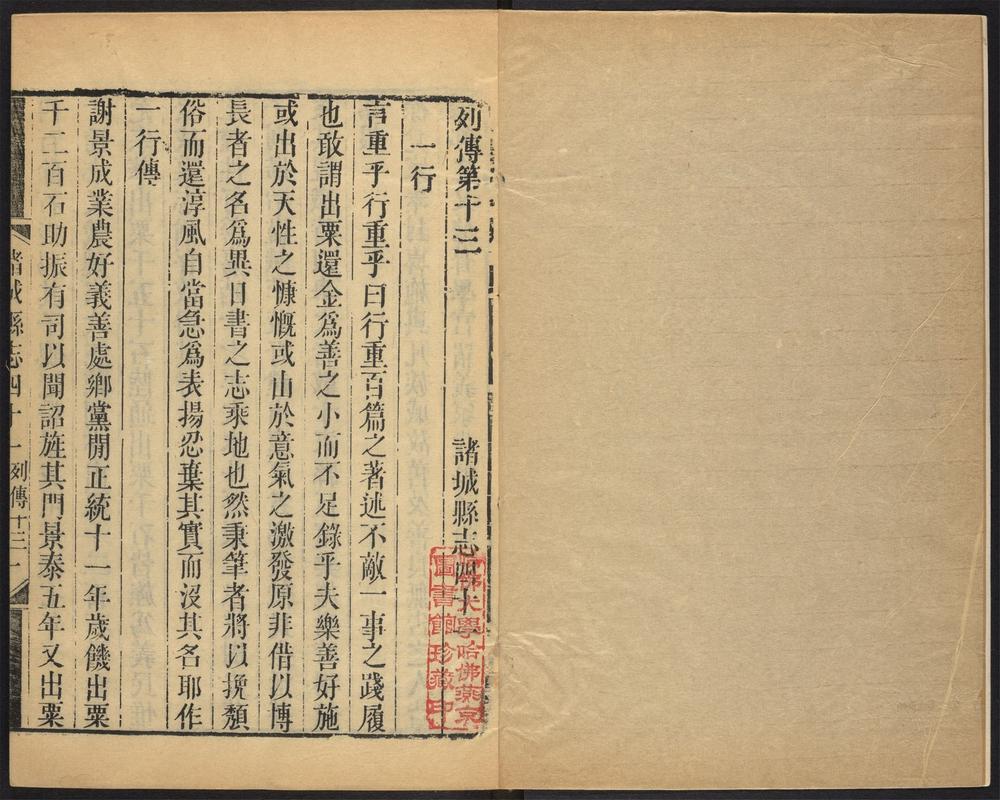 列傳第十三 諸城縣志四十一
一行
言重乎行重乎曰行重百篇之著述不敵一事之踐履
也敢謂出粟還金爲善之小而不足錄乎夫樂善好施
或出於天性之慷慨或由於意氣之激發原非借以博
長者之名爲異日書之志乘地也然秉筆者將以挽頽
俗而還淳風自當急爲表揚忍棄其實而沒其名耶作
一行傳
謝景成業農好義善處鄉黨閒正統十一年歲饑出粟
千二百石助振有司以聞詔旌其門景泰五年又出粟
諸城縣志四十一 列傳十三 一
大學哈佛燕京
圖書館珍藏印